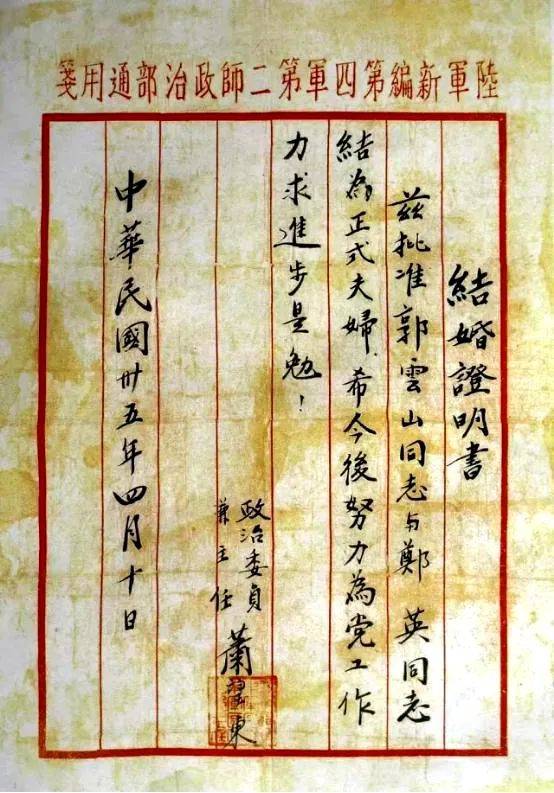 陸軍新編第四軍第二師政治部通用箋
結婚證明書
茲批准郭雲山同志与鄭 英同志
結為正式夫婦，希今後努力為党工作
力求進步是勉！
政治委員
兼主任
蕭望東
中華民國卅五年四月十日